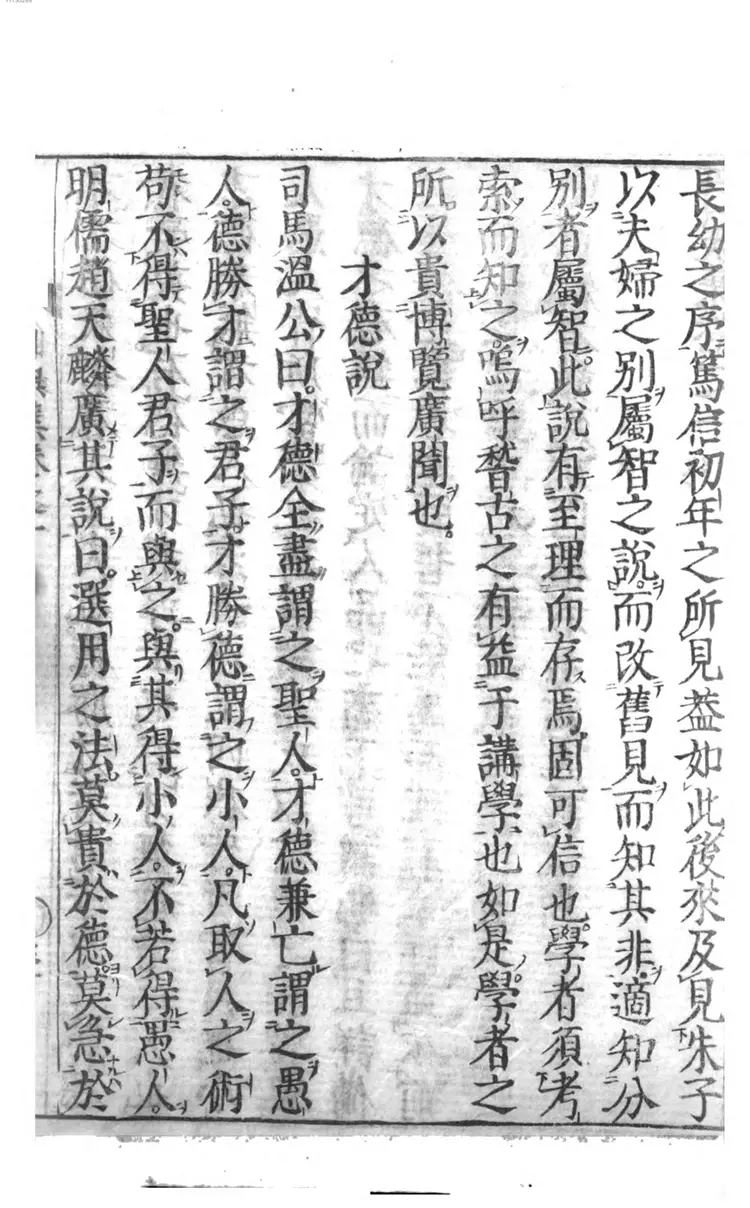 長幼之序篤信初年之所見葢如此後來及見朱子
以夫婦之別屬智之說而改舊見而知其非適知分
別者屬智此說有至理而存焉固可信也學者須考
索而知之嗚呼稽古之有益于講學也如是學者之
所以貴博覽廣聞也
才德說
司馬溫公曰才德全盡謂之聖人才德兼亡謂之愚
人德勝才謂之君子才勝德謂之小人凡取人之術
苟不得聖人君子而與之與其得小人不若得愚人
明儒趙天麟廣其說曰選用之法莫貴於德莫急於